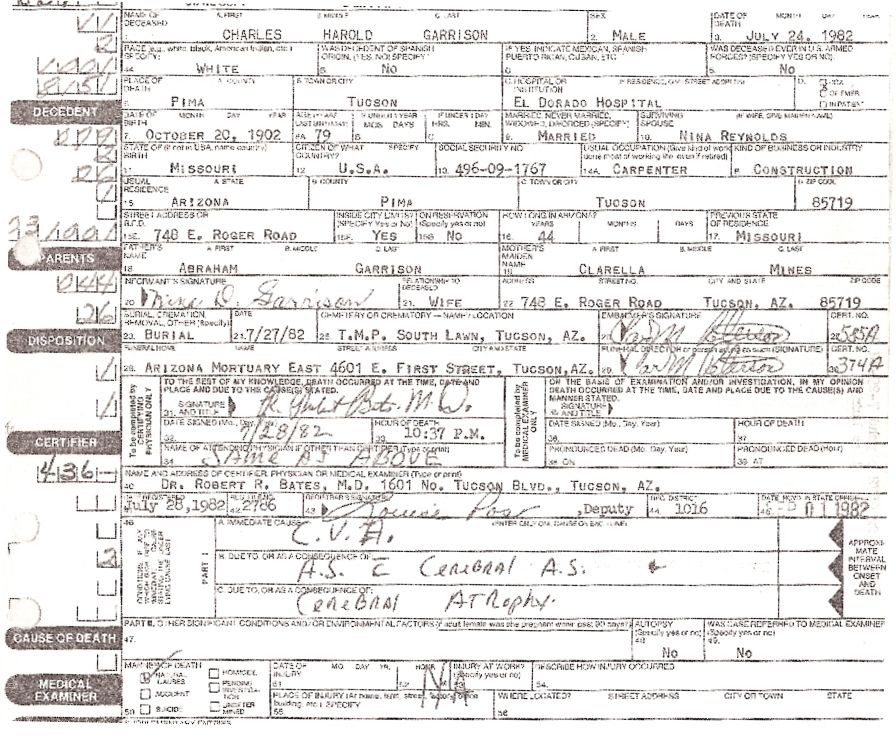 NAME OF DECEASED A. FIRST B. MIDDLE C. LAST SEX DATE OF DEATH MONTH DAY YEAR
1. CHARLES HAROLD GARRISON 2. MALE 3. JULY 24, 1982
RACE (e.g., white, black, American Indian, etc.) SPECIFY: WAS DECEDENT OF SPANISH ORIGIN, (YES, NO) SPECIFY: IF YES, INDICATE MEXICAN, SPANISH, PUERTO RICAN, CUBAN, ETC. WAS DECEASED EVER IN U.S. ARMED FORCES? (SPECIFY YES OR NO)
WHITE No No
PLACE OF DEATH A. COUNTY B. TOWN OR CITY C. HOSPITAL OR INSTITUTION IF RESIDENCE, GIVE STREET ADDRESS
PIMA TUCSON EL DORADO HOSPITAL
DOA
OP EMER.
IN PATIENT
DECEDENT
DATE OF BIRTH MONTH DAY YEAR AGE IF UNDER 1 YEAR MOS. DAYS IF UNDER 1 DAY HRS. MIN. MARRIED, NEVER MARRIED, WIDOWED, DIVORCED (SPECIFY) SURVIVING SPOUSE
7. OCTOBER 20, 1902 8A. 79 B. C. 9. MARRIED 10. NINA REYNOLDS
STATE OF BIRTH (if not in USA, name country) CITIZEN OF WHAT COUNTRY? SPECIFY SOCIAL SECURITY NO. USUAL OCCUPATION KIND OF BUSINESS OR INDUSTRY
11. MISSOURI 12. U.S.A. 13. 496-09-1767 14A. CARPENTER B. CONSTRUCTION
USUAL RESIDENCE A. STATE B. COUNTY C. TOWN OR CITY D. ZIP CODE
15. ARIZONA PIMA TUCSON 85719
STREET ADDRESS OR R.F.D. INSIDE CITY LIMITS? (SPECIFY Yes or No) ON RESERVATION (Specify yes or no) HOW LONG IN ARIZONA? YEARS MONTHS DAYS PREVIOUS STATE OF RESIDENCE
15E. 748 E. ROGER ROAD 15F. YES 15G. No 16. 44 17. MISSOURI
PARENTS
FATHER'S NAME A. FIRST B. MIDDLE C. LAST MOTHER'S MAIDEN NAME A. FIRST B. MIDDLE C. LAST
18. ABRAHAM GARRISON 19. CLARELLA MINES
INFORMANT'S SIGNATURE RELATIONSHIP TO DECEASED ADDRESS STREET NO. CITY AND STATE ZIP CODE
20. Nina D. Garrison 21. WIFE 22. 748 E. ROGER ROAD TUCSON, AZ. 85719
DISPOSITION
BURIAL, CREMATION, REMOVAL, OTHER (Specify) DATE CEMETERY OR CREMATORY - NAME/LOCATION EMBALMER'S SIGNATURE CERT. NO.
23. BURIAL 24. 7/27/82 25. T.M.P. SOUTH LAWN, TUCSON, AZ. 585A
FUNERAL HOME NAME STREET ADDRESS CITY AND STATE (SIGNATURE) CERT. NO.
28. ARIZONA MORTUARY EAST 4601 E. FIRST STREET, TUCSON, AZ. 29. 374A
To be completed by CERTIFYING PHYSICIAN ONLY
TO THE BEST OF MY KNOWLEDGE, DEATH OCCURRED AT THE TIME, DATE AND PLACE AND DUE TO THE CAUSE(S) STATED.
SIGNATURE AND TITLE
31.
DATE SIGNED (Mo., Day, Year) HOUR OF DEATH
32. 7/28/82 33. 10:37 P.M.
NAME OF ATTENDING PHYSICIAN IF OTHER THAN CERTIFIER (Type or print)
SAME AS ABOVE
To be completed by MEDICAL EXAMINER ONLY
ON THE BASIS OF EXAMINATION AND/OR INVESTIGATION, IN MY OPINION DEATH OCCURRED AT THE TIME, DATE AND PLACE DUE TO THE CAUSE(S) AND MANNER STATED.
SIGNATURE AND TITLE
DATE SIGNED (Mo., Day, Year) HOUR OF DEATH
36. 37.
PRONOUNCED DEAD (Mo., Day, Year) PRONOUNCED DEAD (Hour)
38. ON 39. AT
CERTIFIER
436
NAME AND ADDRESS OF CERTIFIER, PHYSICIAN OR MEDICAL EXAMINER (Type or print)
40. DR. ROBERT R. BATES, M.D. 1601 NO. TUCSON BLVD., TUCSON, AZ.
REGISTRAR'S SIGNATURE REG. DISTRICT
July 28, 1982 42. 2786 43. ,Deputy 44. 1016 45. SEP 01 1982
46. A. IMMEDIATE CAUSE
C.V.A.
PART I
B. DUE TO, OR AS A CONSEQUENCE OF:
A.S. C̄ CEREBRAL A.S.
C. DUE TO, OR AS A CONSEQUENCE OF:
CEREBRAL ATROPHY.
APPROXIMATE INTERVAL BETWEEN ONSET AND DEATH
CAUSE OF DEATH
PART II. OTHER SIGNIFICANT CONDITIONS AND/OR ENVIRONMENTAL FACTORS (if adult female was she pregnant within past 90 days?) AUTOPSY (Specify yes or no) WAS CASE REFERRED TO MEDICAL EXAMINER (Specify yes or no)
47. 48. No 49. No
MEDICAL EXAMINER
MANNER OF DEATH
NATURAL CAUSES HOMICIDE
ACCIDENT PENDING INVESTIGATION
50. SUICIDE UNDETERMINED
DATE OF INJURY MO. DAY YR. HOUR INJURY AT WORK? (Specify yes or no) DESCRIBE HOW INJURY OCCURRED
51. 52. NA 53. 54.
PLACE OF INJURY (At home, farm, street, factory, office building, etc.) SPECIFY WHERE LOCATED? STREET ADDRESS CITY OR TOWN STATE
55. 56.